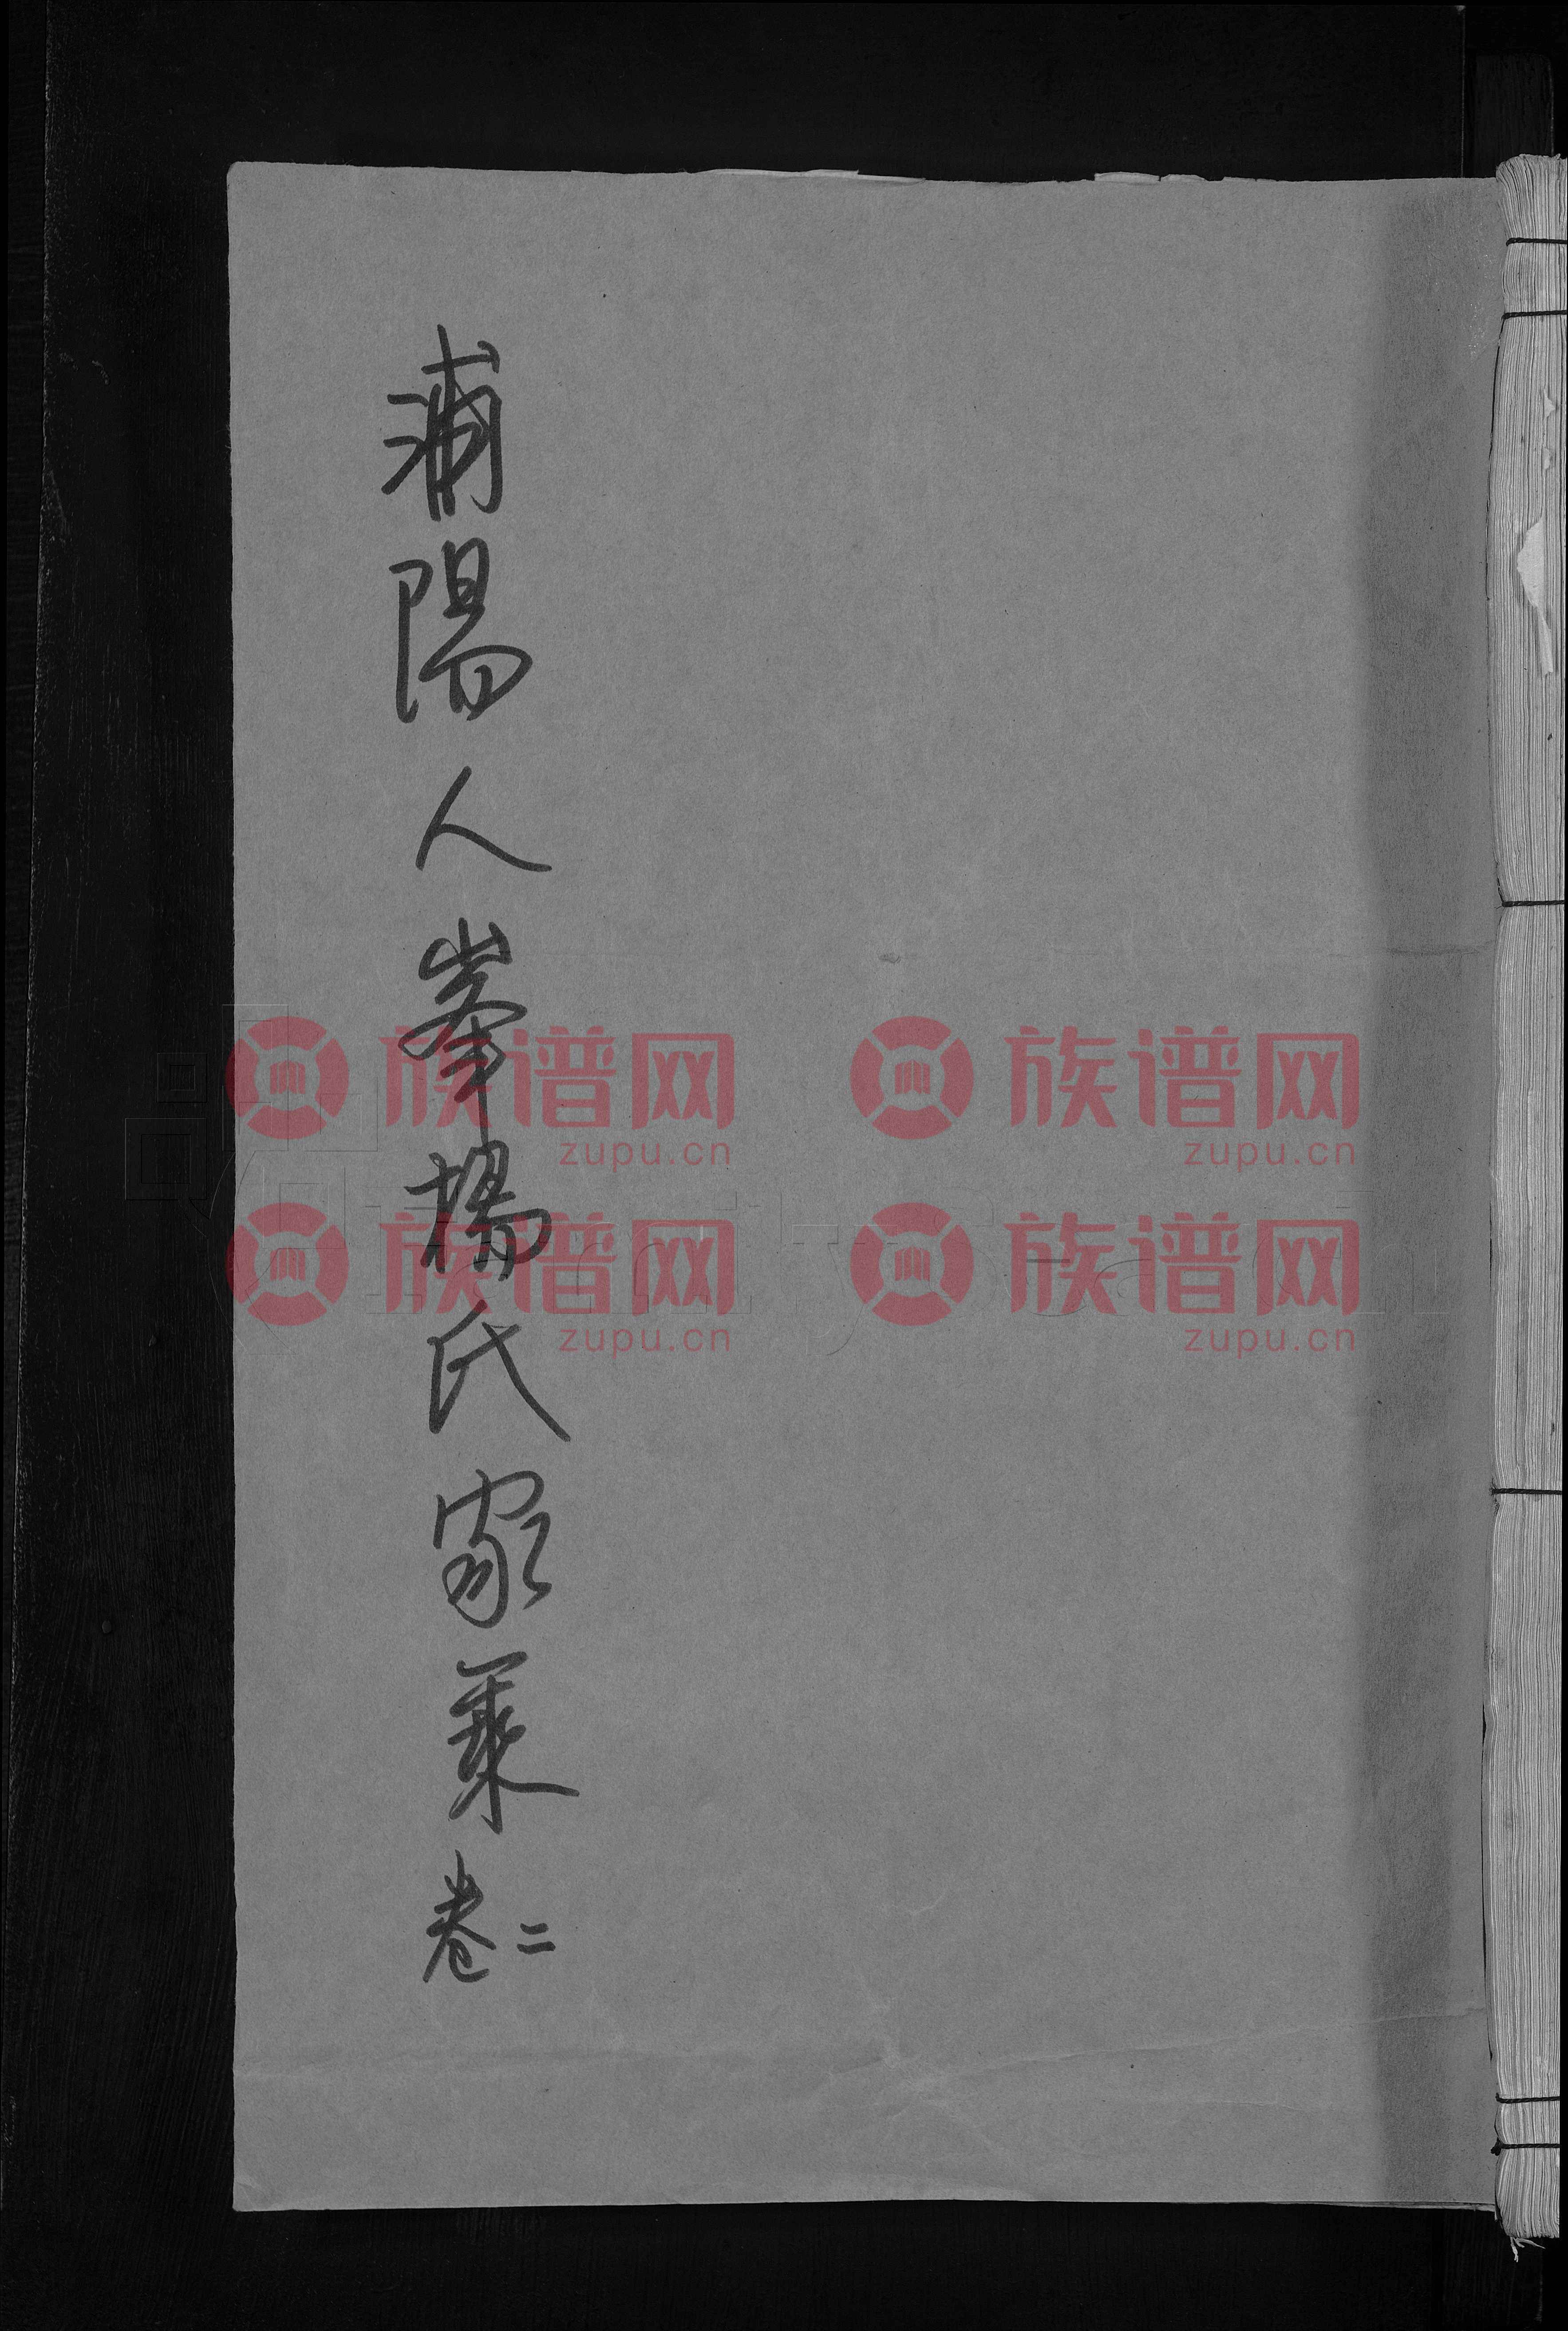 浦陽人峯楊氏家乘卷二
族谱网 族谱网
zupu.cn zupu.cn
族谱网 族谱网
zupu.cn zupu.cn